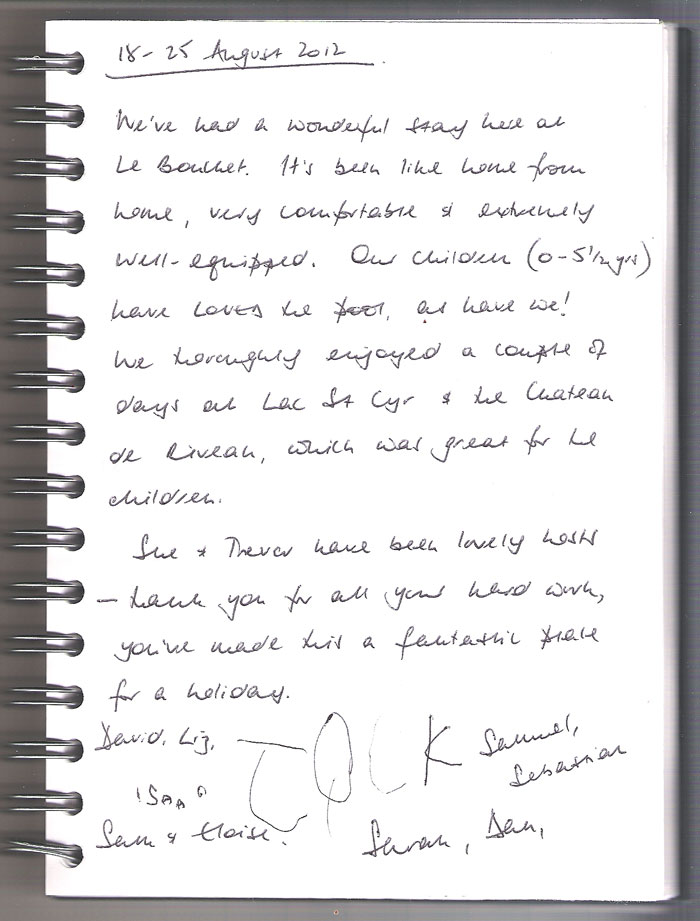 18-25 August 2012
We've had a wonderful stay here at
Le Bouchet. It's been like home from
home, very comfortable & extremely
well-equipped. Our children (0-5 1/2 yrs)
have LOVED the pool, as have we!
We thoroughly enjoyed a couple of
days at Lac St Cyr & the Chateau
de Riveau, which was great for the
children.
Sue & Trevor have been lovely hosts
- thank you for all your hard work,
you've made this a fantastic place
for a holiday.
David, Liz, Samuel,
Sebastian
Sam & Eloise. Sarah, Dan,